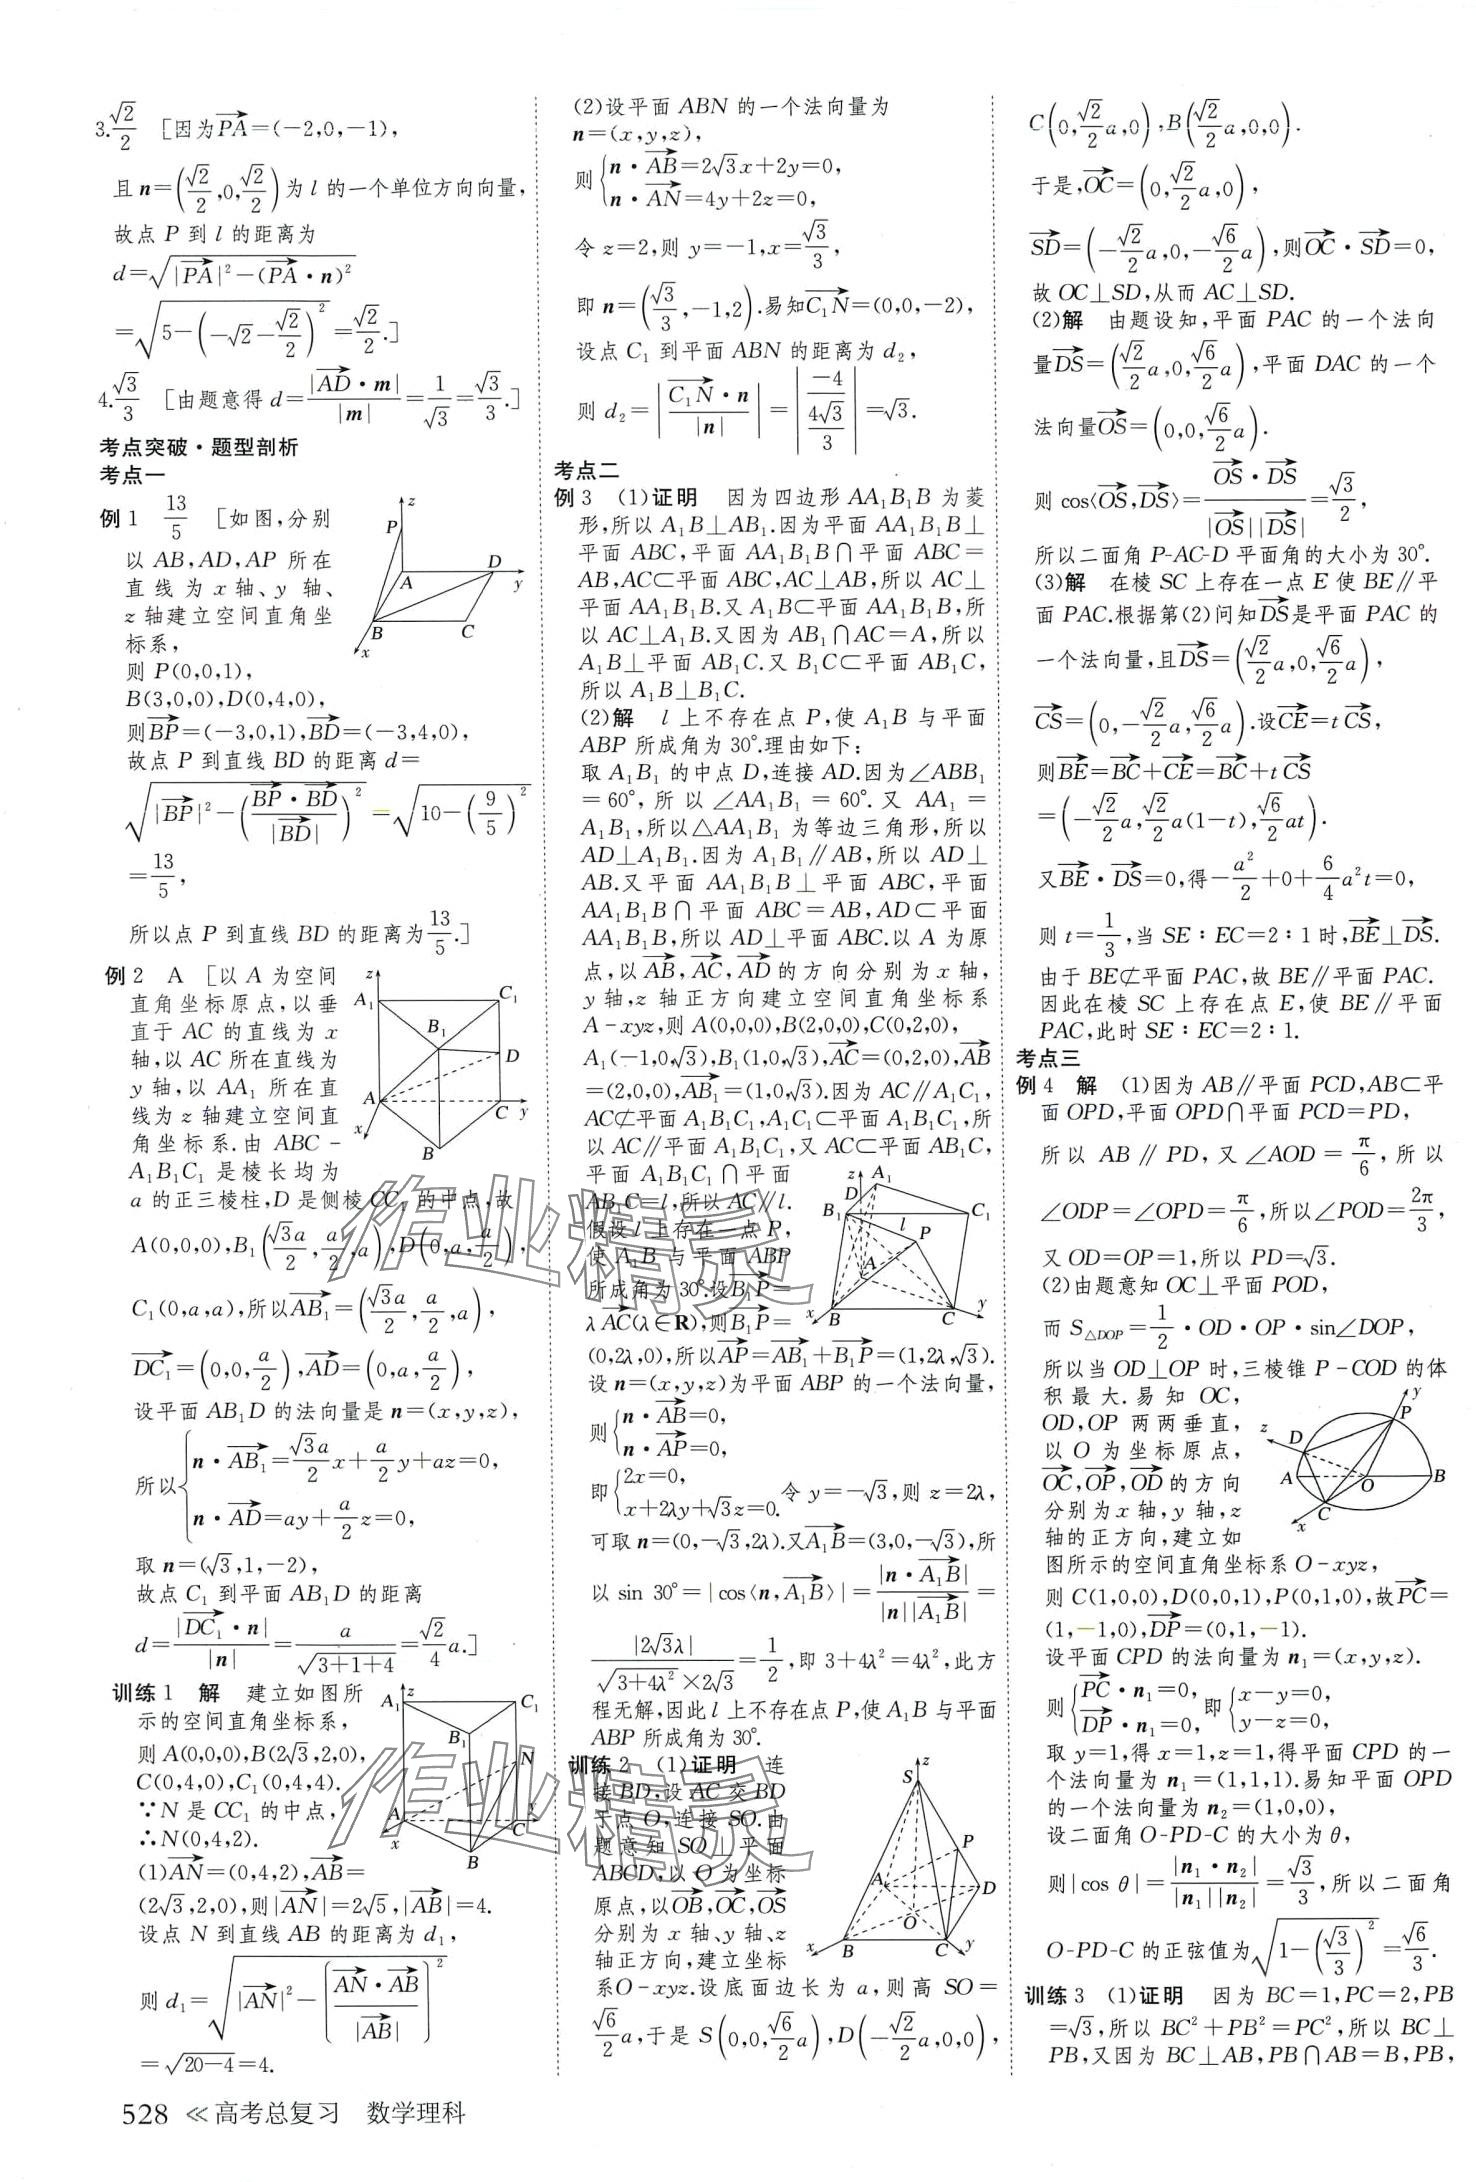 3.√2/2 [因为PA=(-2,0,-1),
且n=(√2/2,0,√2/2)为l的一个单位方向向量,
故点P到l的距离为
d=√(|PA|²-(PA·n)²)
=√(5-(-√2-√2/2)²)=√2/2.]
4.√3/3 [由题意得d=|AD·m|/|m|=1/√3=√3/3.]
考点突破·题型剖析
考点一
例1 13/5 [如图,分别
以AB,AD,AP所在
直线为x轴、y轴、
z轴建立空间直角坐
标系,
则P(0,0,1),
B(3,0,0),D(0,4,0),
则BP=(-3,0,1),BD=(-3,4,0),
故点P到直线BD的距离d=
√(|BP|²-(BP·BD/|BD|)²)=√(10-(9/5)²)
=13/5,
所以点P到直线BD的距离为13/5.]
例2 A [以A为空间
直角坐标原点,以垂
直于AC的直线为x
轴,以AC所在直线为
y轴,以AA₁所在直
线为z轴建立空间直
角坐标系.由ABC-
A₁B₁C₁是棱长均为
a的正三棱柱,D是侧棱CC₁的中点,故
A(0,0,0),B₁(√3a/2,a/2,a),D(0,a,a/2),
C₁(0,a,a),所以AB₁=(√3a/2,a/2,a),
DC₁=(0,0,a/2),AD=(0,a,a/2),
设平面AB₁D的法向量是n=(x,y,z),
所以{n·AB₁=√3a/2x+a/2y+az=0,
n·AD=ay+a/2z=0,
取n=(√3,1,-2),
故点C₁到平面AB₁D的距离
d=|DC₁·n|/|n|=a/√(3+1+4)=√2/4a.]
训练1 解 建立如图所
示的空间直角坐标系,
则A(0,0,0),B(2√3,2,0),
C(0,4,0),C₁(0,4,4).
∵N是CC₁的中点,
∴N(0,4,2).
(1)AN=(0,4,2),AB=
(2√3,2,0),则|AN|=2√5,|AB|=4.
设点N到直线AB的距离为d₁,
则d₁=√(|AN|²-(AN·AB/|AB|)²)
=√(20-4)=4.
528 《高考总复习 数学理科
(2)设平面ABN的一个法向量为
n=(x,y,z),
则{n·AB=2√3x+2y=0,
n·AN=4y+2z=0,
令z=2,则y=-1,x=√3/3,
即n=(√3/3,-1,2).易知C₁N=(0,0,-2),
设点C₁到平面ABN的距离为d₂,
则d₂=|C₁N·n/|n||=|-4/(4√3/3)|=√3.
考点二
例3 (1)证明 因为四边形AA₁B₁B为菱
形,所以A₁B⊥AB₁.因为平面AA₁B₁B⊥
平面ABC,平面AA₁B₁B∩平面ABC=
AB,AC⊂平面ABC,AC⊥AB,所以AC⊥
平面AA₁B₁B.又A₁B⊂平面AA₁B₁B,所
以AC⊥A₁B.又因为AB₁∩AC=A,所以
A₁B⊥平面AB₁C.又B₁C⊂平面AB₁C,
所以A₁B⊥B₁C.
(2)解 l上不存在点P,使A₁B与平面
ABP所成角为30°.理由如下:
取A₁B₁的中点D,连接AD.因为∠ABB₁
=60°,所以∠AA₁B₁=60°.又AA₁=
A₁B₁,所以△AA₁B₁为等边三角形,所以
AD⊥A₁B₁.因为A₁B₁∥AB,所以AD⊥
AB.又平面AA₁B₁B⊥平面ABC,平面
AA₁B₁B∩平面ABC=AB,AD⊂平面
AA₁B₁B,所以AD⊥平面ABC.以A为原
点,以AB,AC,AD的方向分别为x轴,
y轴,z轴正方向建立空间直角坐标系
A-xyz,则A(0,0,0),B(2,0,0),C(0,2,0),
A₁(-1,0,√3),B₁(1,0,√3),AC=(0,2,0),AB
=(2,0,0),AB₁=(1,0,√3).因为AC∥A₁C₁,
AC⊄平面A₁B₁C₁,A₁C₁⊂平面A₁B₁C₁,所
以AC∥平面A₁B₁C₁,又AC⊂平面AB₁C,
平面A₁B₁C₁∩平面
AB₁C=l,所以AC∥l.
假设l上存在一点P,
使A₁B与平面ABP
所成角为30°.设B₁P=
λAC(λ∈R),则B₁P=
(0,2λ,0),所以AP=AB₁+B₁P=(1,2λ,√3).
设n=(x,y,z)为平面ABP的一个法向量,
则{n·AB=0,
n·AP=0,
即{2x=0,
x+2λy+√3z=0.令y=-√3,则z=2λ,
可取n=(0,-√3,2λ).又A₁B=(3,0,-√3),所
以sin 30°=|cos⟨n,A₁B⟩|=|n·A₁B|/|n||A₁B|=
|2√3λ|/(√(3+4λ²)×2√3)=1/2,即3+4λ²=4λ²,此方
程无解,因此l上不存在点P,使A₁B与平面
ABP所成角为30°.
训练2 (1)证明 连
接BD,设AC交BD
于点O,连接SO.由
题意知SO⊥平面
ABCD,以O为坐标
原点,以OB,OC,OS
分别为x轴、y轴、z
轴正方向,建立坐标
系O-xyz.设底面边长为a,则高SO=
√6/2a,于是S(0,0,√6/2a),D(-√2/2a,0,0),
C(0,√2/2a,0),B(√2/2a,0,0).
于是,OC=(0,√2/2a,0),
SD=(-√2/2a,0,-√6/2a),则OC·SD=0,
故OC⊥SD,从而AC⊥SD.
(2)解 由题设知,平面PAC的一个法向
量DS=(√2/2a,0,√6/2a),平面DAC的一个
法向量OS=(0,0,√6/2a).
则cos⟨OS,DS⟩=OS·DS/|OS||DS|=√3/2,
所以二面角P-AC-D平面角的大小为30°.
(3)解 在棱SC上存在一点E使BE∥平
面PAC.根据第(2)问知DS是平面PAC的
一个法向量,且DS=(√2/2a,0,√6/2a),
CS=(0,-√2/2a,√6/2a).设CE=tCS,
则BE=BC+CE=BC+tCS
=(-√2/2a,√2/2a(1-t),√6/2at).
又BE·DS=0,得-a²/2+0+6/4a²t=0,
则t=1/3,当SE∶EC=2∶1时,BE⊥DS.
由于BE⊄平面PAC,故BE∥平面PAC.
因此在棱SC上存在点E,使BE∥平面
PAC,此时SE∶EC=2∶1.
考点三
例4 解 (1)因为AB∥平面PCD,AB⊂平
面OPD,平面OPD∩平面PCD=PD,
所以AB∥PD,又∠AOD=π/6,所以
∠ODP=∠OPD=π/6,所以∠POD=2π/3,
又OD=OP=1,所以PD=√3.
(2)由题意知OC⊥平面POD,
而S△DOP=1/2·OD·OP·sin∠DOP,
所以当OD⊥OP时,三棱锥P-COD的体
积最大.易知OC,
OD,OP两两垂直,
以O为坐标原点,
OC,OP,OD的方向
分别为x轴,y轴,z
轴的正方向,建立如
图所示的空间直角坐标系O-xyz,
则C(1,0,0),D(0,0,1),P(0,1,0),故PC=
(1,-1,0),DP=(0,1,-1).
设平面CPD的法向量为n₁=(x,y,z).
则{PC·n₁=0,
DP·n₁=0,即{x-y=0,
y-z=0,
取y=1,得x=1,z=1,得平面CPD的一
个法向量为n₁=(1,1,1).易知平面OPD
的一个法向量为n₂=(1,0,0),
设二面角O-PD-C的大小为θ,
则|cos θ|=|n₁·n₂|/|n₁||n₂|=√3/3,所以二面角
O-PD-C的正弦值为√(1-(√3/3)²)=√6/3.
训练3 (1)证明 因为BC=1,PC=2,PB
=√3,所以BC²+PB²=PC²,所以BC⊥
PB,又因为BC⊥AB,PB∩AB=B,PB,
作业精灵
作业精灵